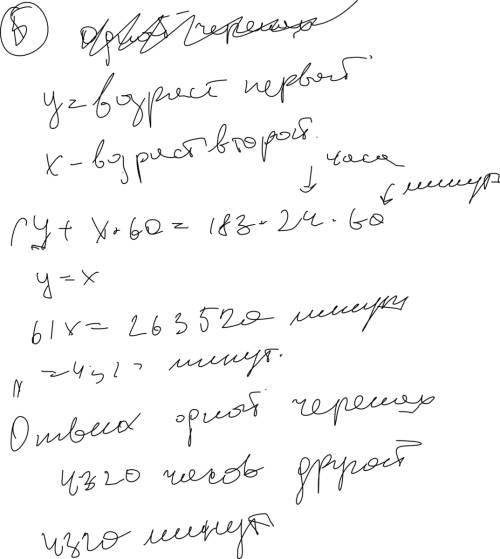 5
одной черепах
y = возраст первой
x - возраст второй.
часа
минут
y + x · 60 = 183 · 24 · 60
y = x
61x = 263520 минут
= 4320 минут.
одной черепах
4320 часов другой
4320 минут